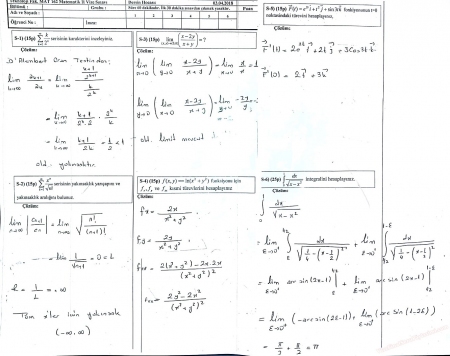 Teknoloji Fak. MAT 162 Matematik II Vize Sınavı
Dersin Hocası:
03.04.2018
Bölümü :
Grubu :
Puan
Adı ve Soyadı :
1 2 3 4 5 6
Öğrenci No :
İmza:
S-1) (15p) serisinin karakterini inceleyiniz.
Çözüm:
D'Alembert Oran Testinden;
lim a_{k+1}/a_k = lim (k+1)/2^{k+1} / k/2^k
= lim (k+1)/(2^k·2) · 2^k/k
= lim (k+1)/2k = 1/2 < 1
old. yakınsaktır.
S-2) (15p) serisinin yakınsaklık yarıçapını ve
yakınsaklık aralığını bulunuz.
Çözüm:
lim |a_{n+1}/a_n| = lim √(n!/(n+1)!)
= lim 1/√(n+1) = 0 = L
R = 1/L = +∞
Tüm x'ler için yakınsak
(-∞, ∞)
S-3) (15p) lim (x-2y)/(x+y) = ?
Çözüm:
lim x→0 (lim y→0 (x-2y)/(x+y)) = lim x→0 x/x = 1
lim y→0 (lim x→0 (x-2y)/(x+y)) = lim y→0 -2y/y =
old. limit mevcut
S-4) (15p) f(x,y) = ln(x²+y²) fonksiyonu için
f_x, f_y ve f_xx kısmi türevlerini hesaplayınız
Çözüm:
f_x = 2x/(x²+y²)
f_y = 2y/(x²+y²)
f_xx = (2(x²+y²) - 2x.2x)/(x²+y²)²
f_xx = (2y²-2x²)/(x²+y²)²
S-5) (15p) fonksiyonunun t=0
noktasındaki türevini hesaplayınız.
Çözüm:
F'(0) = 2j + 3k
S-6) (25p) ∫ dx/√(x-x²) integralini hesaplayınız.
Çözüm:
∫ dx/√(x-x²)
= lim ε→0⁺ ∫ dx/√(1/4-(x-1/2)²) + lim ε→0⁺ ∫ dx/√(1/4-(x-1/2)²)
= lim ε→0⁺ arc sin(2x-1) + lim ε→0⁺ arc sin(2x-1)
= lim ε→0⁺ (-arc sin(2ε-1)) + lim ε→0⁺ (arc sin(1-2ε))
= π/2 + π/2 = π